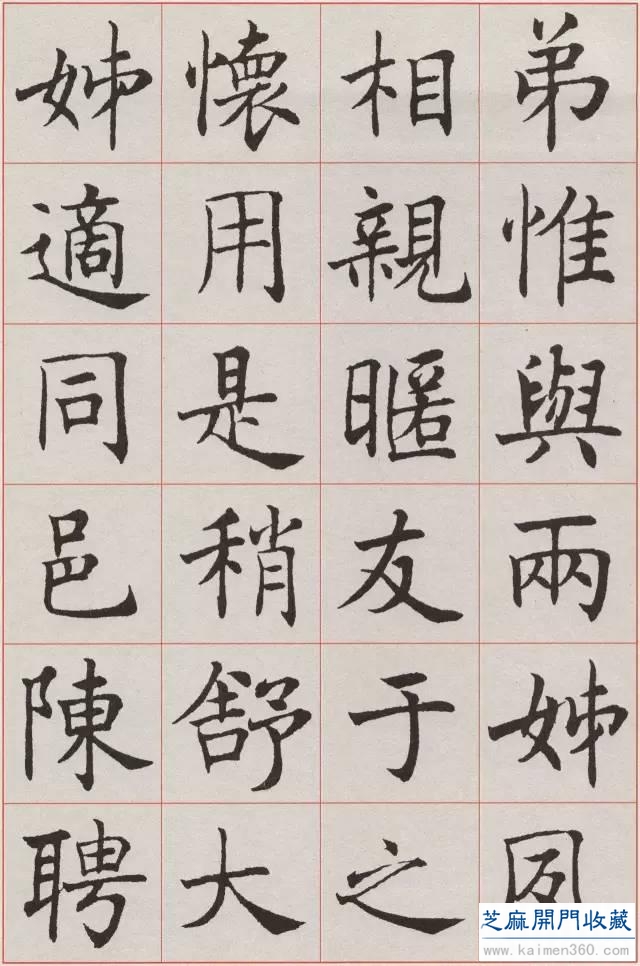 弟惟與兩姊
相親暱友于之
懷用是稍舒大
姊適同邑陳聘
芝麻開門收藏
www.kaimen360.com